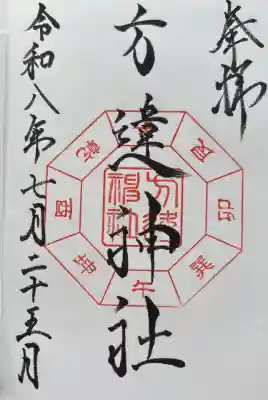 奉拝
方違神社
令和八年七月二十五日
艮
卯
巽
午
坤
酉
乾
方違
神社